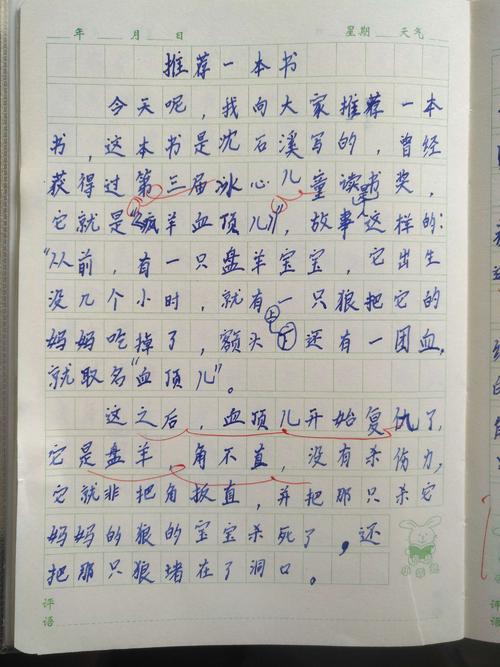 年 月 日 星期 天气
推荐一本书
今天呢，我向大家推荐一本
书，这本书是沈石溪写的，曾经
获得过第三届冰心儿童读书奖，
它就是《疯羊血顶儿》，故事这样的：
是
“从前，有一只盘羊宝宝，它出生
没几个小时，就有一只狼把它的
妈妈吃掉了，额头上还有一团血，
就取名“血顶儿”。
这之后，血顶儿开始复仇了，
它是盘羊，角不直，没有杀伤力，
它就非把角扳直，并把那只杀它
妈妈的狼的宝宝杀死了，还
把那只狼堵在了洞口。
评语